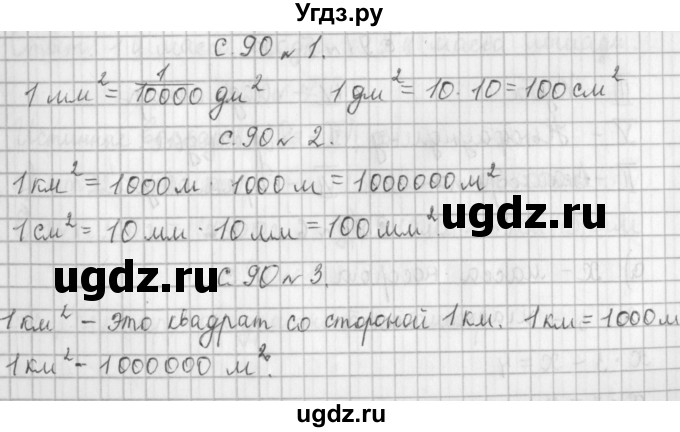 Угдз.ру
с. 90 № 1.
1 мм² = 1/10000 дм²   1 дм² = 10 · 10 = 100 см²
с. 90 № 2.
1 км² = 1000 м · 1000 м = 1000000 м²
ugdz.ru
ugdz.ru
1 см² = 10 мм · 10 мм = 100 мм²
с. 90 № 3.
1 км² – это квадрат со стороной 1 км. 1 км = 1000 м
1 км² – 1000000 м².
ugdz.ru
ugdz.ru